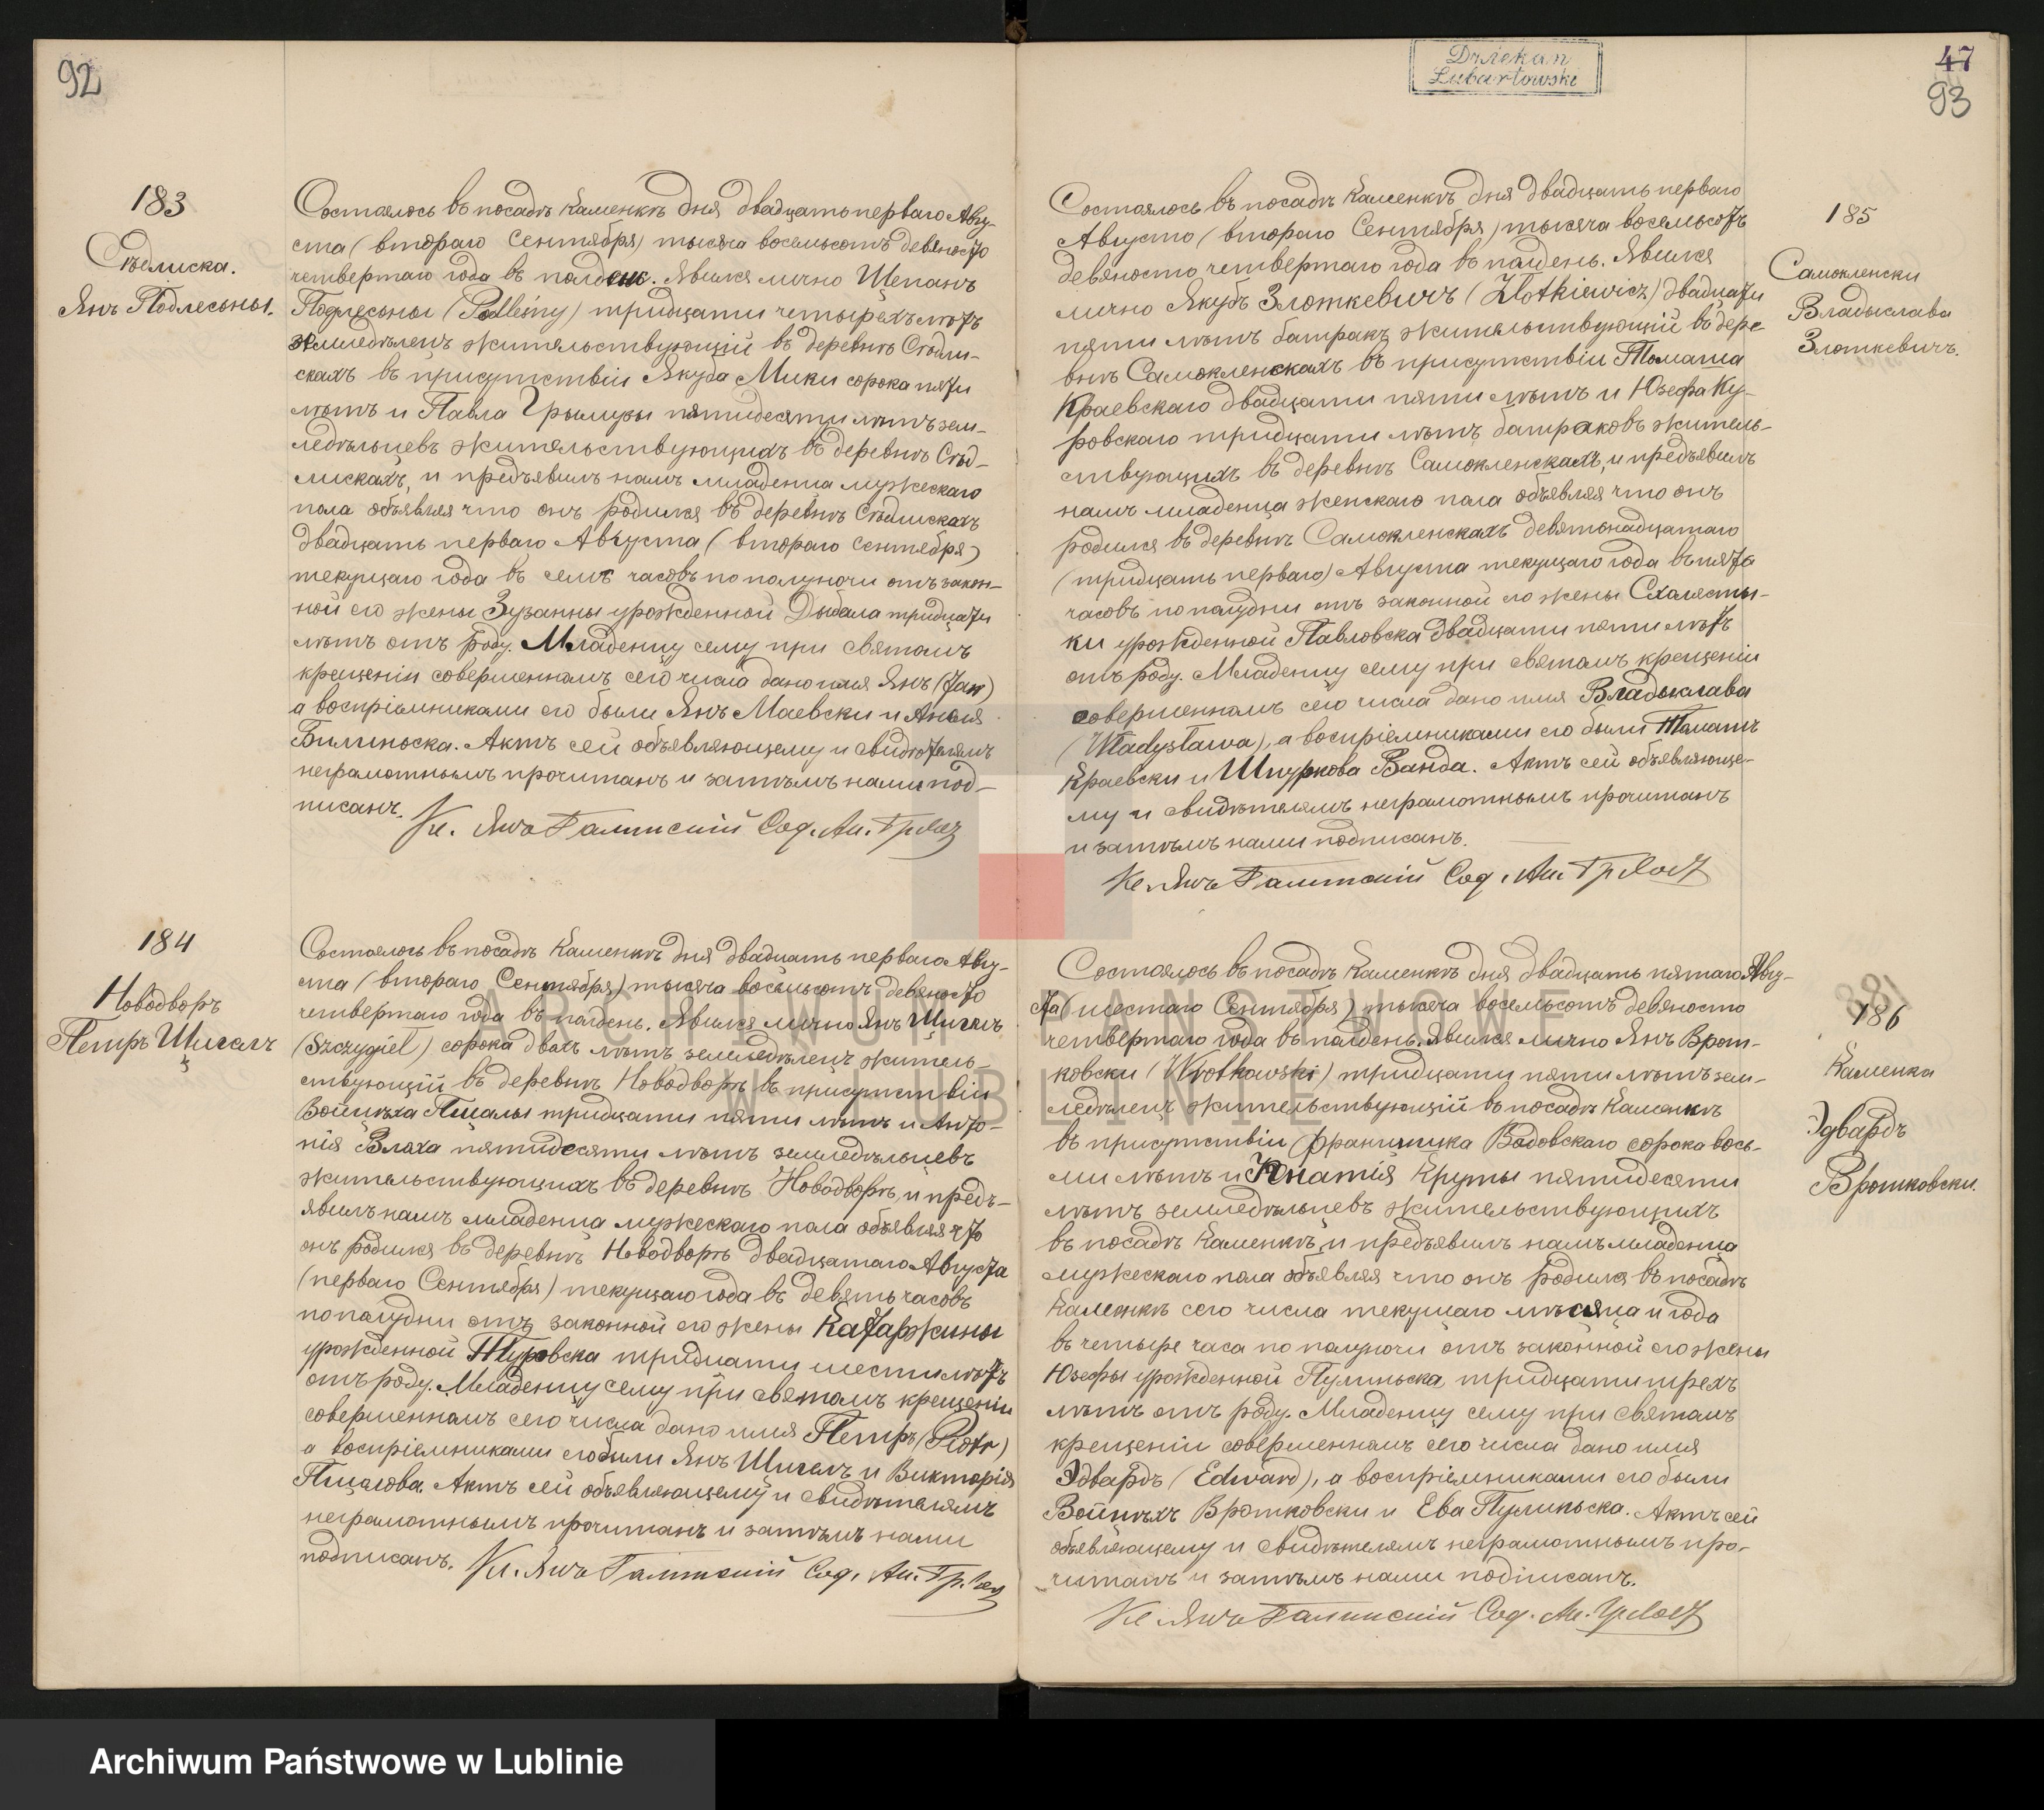 92
183
Съдлиска.
Янъ Подлесьны.
Состоялось въ посадѣ Каменкѣ дня двадцать перваго Авгу-
ста (втораго Сентября) тысяча восемьсотъ девяносто
четвертаго года въ полдень. Явился лично Щепанъ
Подлесьны (Podleśny) тридцати четырехъ лѣтъ
земледѣлецъ жительствующій въ деревнѣ Сѣдли-
скахъ въ присутствіи Якуба Мики сорока пяти
лѣтъ и Павла пятидесяти лѣтъ зем-
ледѣльцевъ жительствующихъ въ деревнѣ Сѣд-
лискахъ, и предъявилъ намъ младенца мужескаго
пола объявляя что онъ родился въ деревнѣ Сѣдлискахъ
двадцать перваго Августа (втораго Сентября)
текущаго года въ семь часовъ по полуночи отъ закон-
ной его жены Зузанны урожденной Дыбала тридцати
лѣтъ отъ роду. Младенцу сему при святомъ
крещеніи совершенномъ сего числа дано имя Янъ (Jan)
а воспріемниками его были Янъ Маевски и Анеля
Билиньска. Актъ сей объявляющему и свидѣтелямъ
неграмотнымъ прочитанъ и затѣмъ нами под-
писанъ. Кс. Янъ Сод. Ак. Гр. Сост
184
Новодворъ
Петръ Щигелъ
Состоялось въ посадѣ Каменкѣ дня двадцать перваго Авгу-
ста (втораго Сентября) тысяча восемьсотъ девяносто
четвертаго года въ полдень. Явился лично Янъ Щигелъ
(Szczygieł) сорока двохъ лѣтъ земледѣлецъ житель-
ствующій въ деревнѣ Новодворѣ въ присутствіи
Войцѣха Пщалы тридцати пяти лѣтъ и Анто-
нія Влаха пятидесяти лѣтъ земледѣльцевъ
жительствующихъ въ деревнѣ Новодворѣ, и предъ-
явилъ намъ младенца мужескаго пола объявляя что
онъ родился въ деревнѣ Новодворѣ двадцатаго Августа
(перваго Сентября) текущаго года въ девять часовъ
по полудни отъ законной его жены Катаржины
урожденной Туровска тридцати шести лѣтъ
отъ роду. Младенцу сему при святомъ крещеніи
совершенномъ сего числа дано имя Петръ (Piotr)
а воспріемниками его были Янъ Щигелъ и Викторія
Пщалова. Актъ сей объявляющему и свидѣтелямъ
неграмотнымъ прочитанъ и затѣмъ нами
подписанъ. Кс. Янъ Сод. Ак. Гр. Сост
Dziekan
Lubartowski
47
93
185
Самокленски
Владыслава
Злоткевичъ.
Состоялось въ посадѣ Каменкѣ дня двадцать перваго
Августо (втораго Сентября) тысяча восемьсотъ
девяносто четвертаго года въ полдень. Явился
лично Якубъ Злоткевичъ (Złotkiewicz) двадцати
пяти лѣтъ батракъ жительствующій въ дере-
внѣ Самокленскахъ въ присутствіи Томаша
Краевскаго двадцати пяти лѣтъ и Юзефа Ку-
ровскаго тридцати лѣтъ батраковъ житель-
ствующихъ въ деревнѣ Самокленскахъ, и предъявилъ
намъ младенца женскаго пола объявляя что онъ
родился въ деревнѣ Самокленскахъ девятьнадцатаго
(тридцать перваго) Августа текущаго года въ пять
часовъ по полудни отъ законной его жены Схоласты-
ки урожденной Павловска двадцати пяти лѣтъ
отъ роду. Младенцу сему при святомъ крещеніи
совершенномъ сего числа дано имя Владыслава
(Władysława), а воспріемниками его были Томашъ
Краевски и Шнуркова Ванда. Актъ сей объявляюще-
му и свидѣтелямъ неграмотнымъ прочитанъ
и затѣмъ нами подписанъ.
Кс. Янъ Сод. Ак. Гр. Сост
186
Каменка
Эдвардъ
Вротковски.
Состоялось въ посадѣ Каменкѣ дня двадцать пятаго Авгу-
ста (шестаго Сентября) тысяча восемьсотъ девяносто
четвертаго года въ полдень. Явился лично Янъ Врот-
ковски (Wrotkowski) тридцати пяти лѣтъ зем-
ледѣлецъ жительствующій въ посадѣ Каменкѣ
въ присутствіи Францишка Вадовскаго сорока вось-
ми лѣтъ и Игнатія Крупы пятидесяти
лѣтъ земледѣльцевъ жительствующихъ
въ посадѣ Каменкѣ, и предъявилъ намъ младенца
мужескаго пола объявляя что онъ родился въ посадѣ
Каменкѣ сего числа текущаго мѣсяца и года
въ четыре часа по полуночи отъ законной его жены
Юзефы урожденной Пулиньска тридцати трехъ
лѣтъ отъ роду. Младенцу сему при святомъ
крещеніи совершенномъ сего числа дано имя
Эдвардъ (Edward), а воспріемниками его были
Войцѣхъ Вротковски и Ева Пулиньска. Актъ сей
объявляющему и свидѣтелямъ неграмотнымъ про-
читанъ и затѣмъ нами подписанъ.
Кс. Янъ Сод. Ак. Гр. Сост
ARCHIWUM PAŃSTWOWE
W LUBLINIE
Archiwum Państwowe w Lublinie